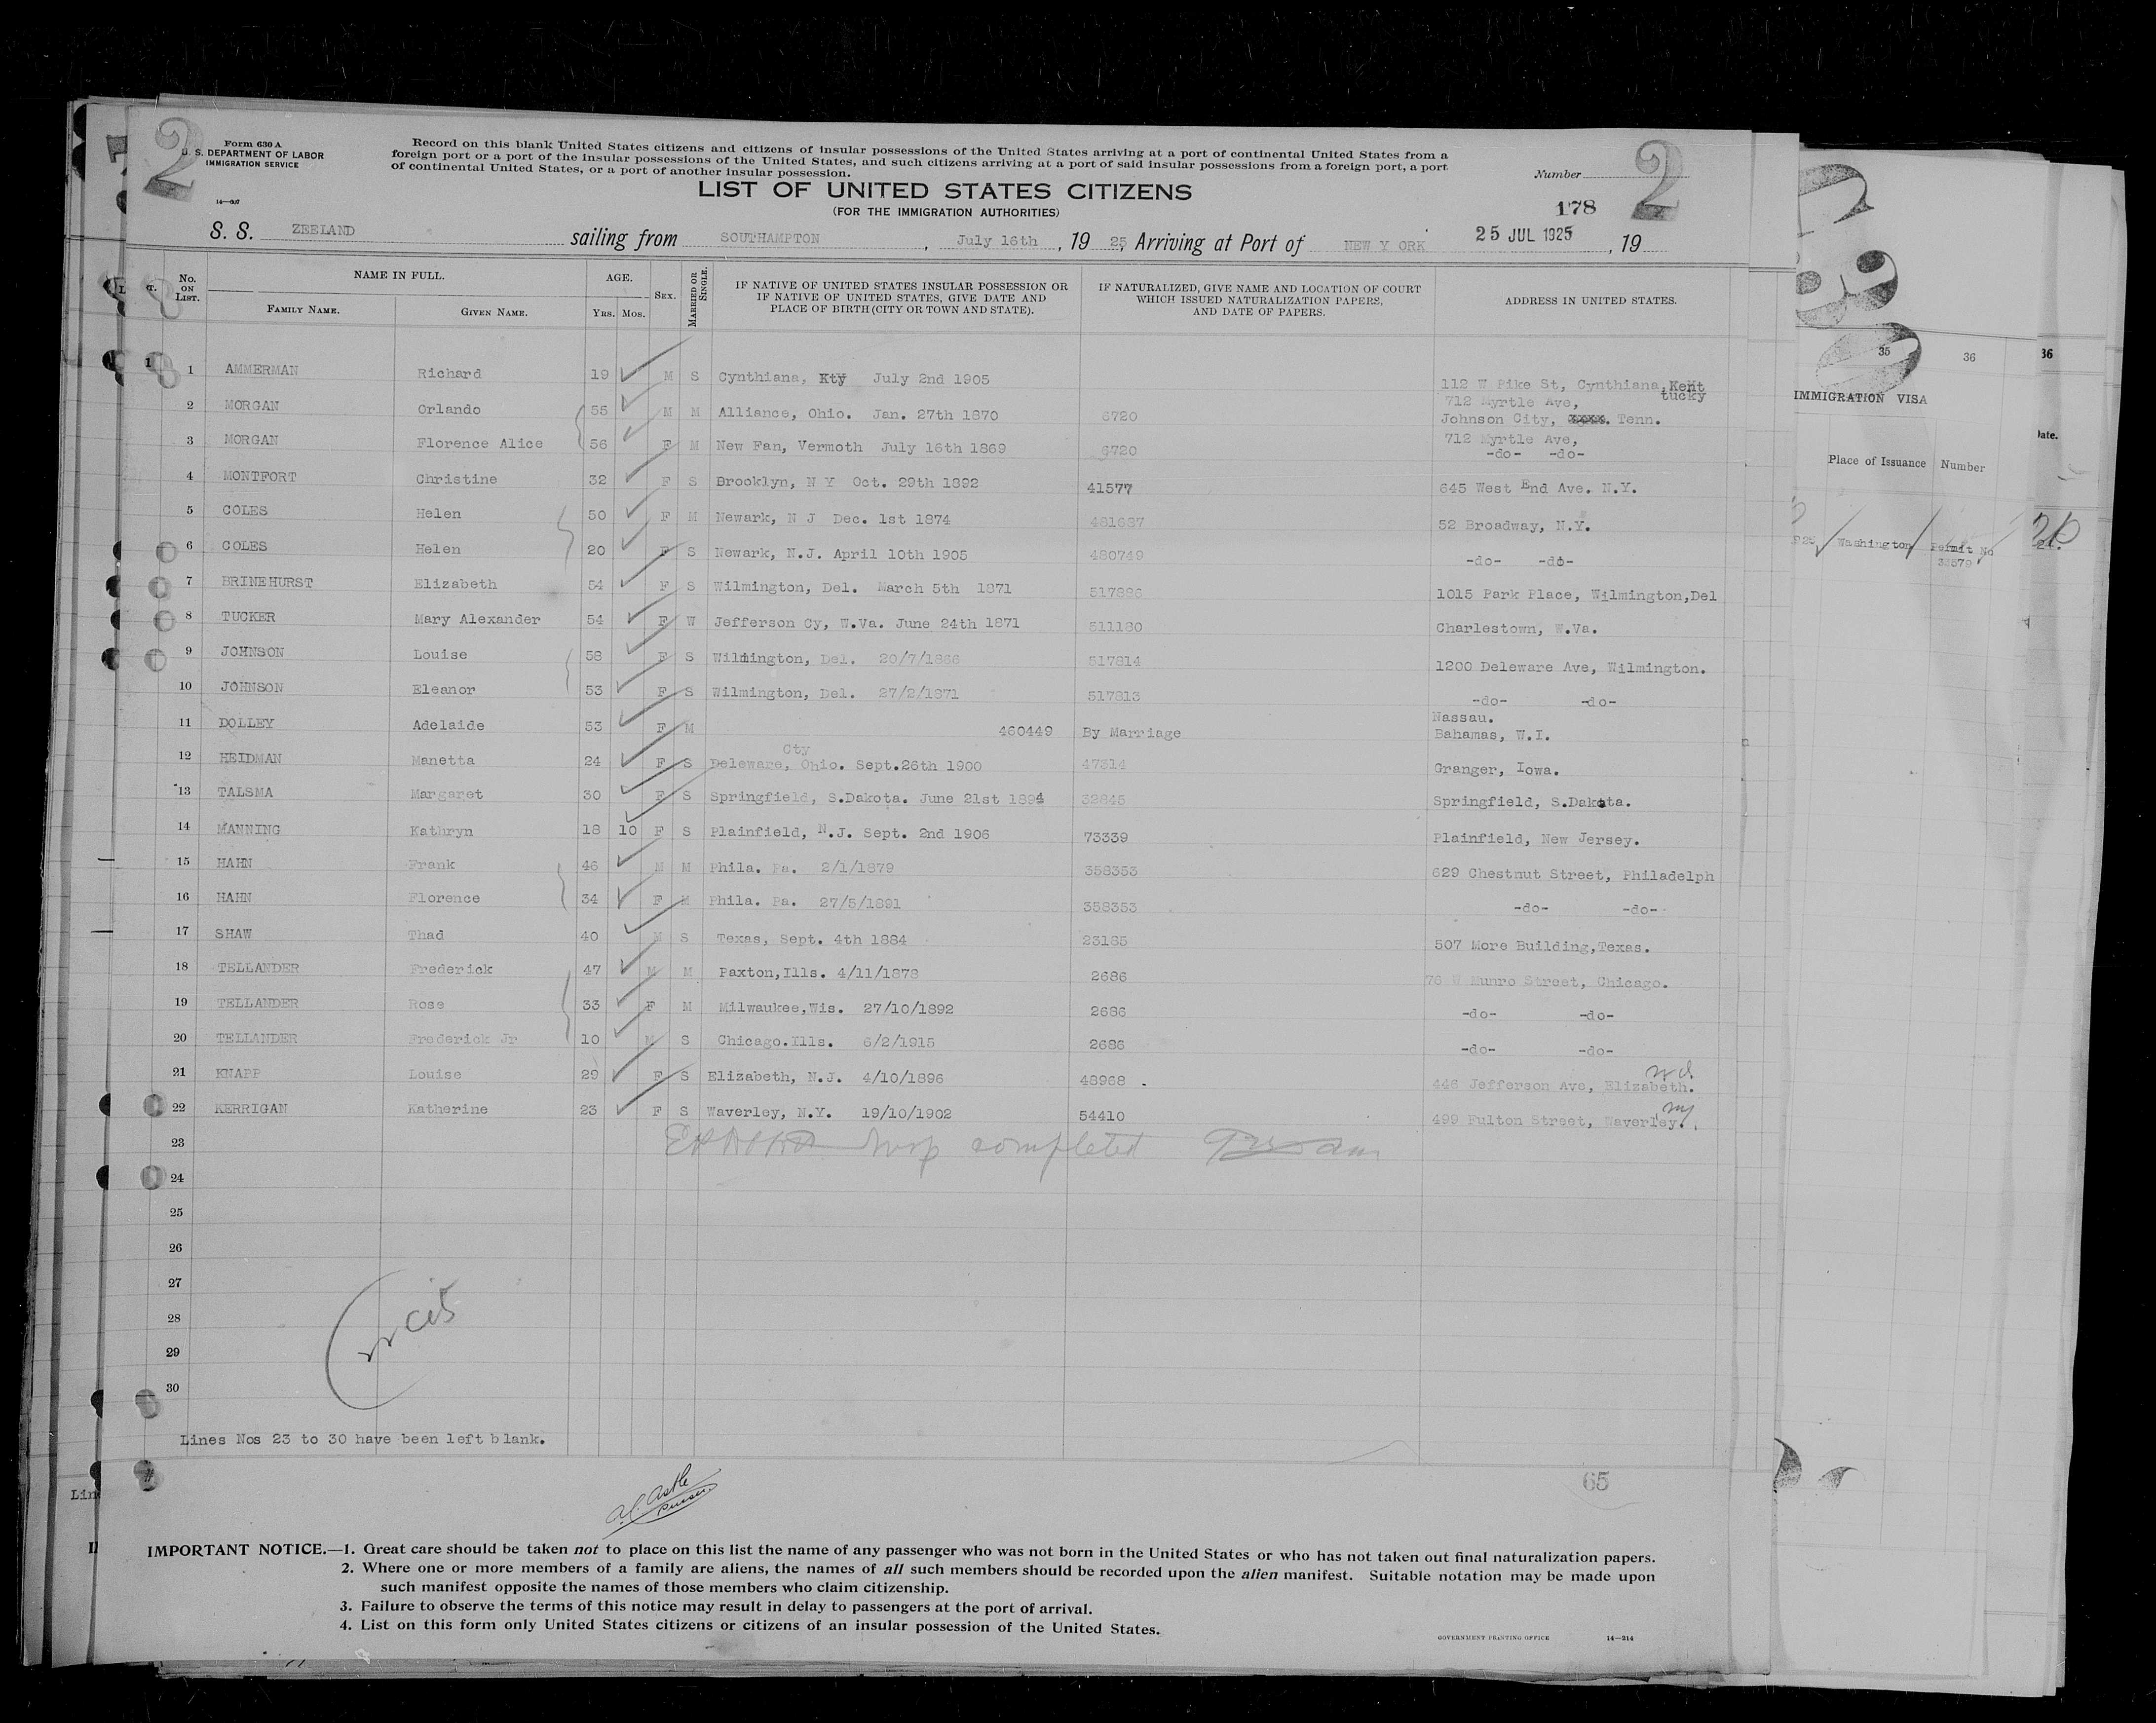 2
Form 630 A
U. S. DEPARTMENT OF LABOR
IMMIGRATION SERVICE
14—607
Record on this blank United States citizens and citizens of insular possessions of the United States arriving at a port of continental United States from a
foreign port or a port of the insular possessions of the United States, and such citizens arriving at a port of said insular possessions from a foreign port, a port
of continental United States, or a port of another insular possession.
Number
2
LIST OF UNITED STATES CITIZENS
(FOR THE IMMIGRATION AUTHORITIES)
178
S. S. ZEELAND sailing from SOUTHAMPTON, July 16th, 19 25, Arriving at Port of NEW Y ORK 25 JUL 1925, 19
No. ON LIST. NAME IN FULL. FAMILY NAME. GIVEN NAME. AGE. YRS. MOS. SEX. MARRIED OR SINGLE. IF NATIVE OF UNITED STATES INSULAR POSSESSION OR IF NATIVE OF UNITED STATES, GIVE DATE AND PLACE OF BIRTH (CITY OR TOWN AND STATE). IF NATURALIZED, GIVE NAME AND LOCATION OF COURT WHICH ISSUED NATURALIZATION PAPERS, AND DATE OF PAPERS. ADDRESS IN UNITED STATES.
1 AMMERMAN Richard 19 M S Cynthiana, Kty July 2nd 1905 112 W Pike St, Cynthiana, Kent tucky
2 MORGAN Orlando 55 M M Alliance, Ohio. Jan. 27th 1870 6720 712 Myrtle Ave, Johnson City, xxxx. Tenn.
3 MORGAN Florence Alice 56 F M New Fan, Vermoth July 16th 1869 6720 712 Myrtle Ave, -do- -do-
4 MONTFORT Christine 32 F S Brooklyn, N Y Oct. 29th 1892 41577 645 West End Ave. N.Y.
5 COLES Helen 50 F M Newark, N J Dec. 1st 1874 481687 52 Broadway, N.Y.
6 COLES Helen 20 F S Newark, N.J. April 10th 1905 480749 -do- -do-
7 BRINEHURST Elizabeth 54 F S Wilmington, Del. March 5th 1871 517886 1015 Park Place, Wilmington,Del
8 TUCKER Mary Alexander 54 F W Jefferson Cy, W.Va. June 24th 1871 511180 Charlestown, W.Va.
9 JOHNSON Louise 58 F S Wilmington, Del. 20/7/1866 517814 1200 Deleware Ave, Wilmington.
10 JOHNSON Eleanor 53 F S Wilmington, Del. 27/2/1871 517813 -do- -do-
11 DOLLEY Adelaide 53 F M 460449 By Marriage Nassau. Bahamas, W.I.
12 HEIDMAN Manetta 24 F S Deleware, Cty Ohio. Sept.26th 1900 47314 Granger, Iowa.
13 TALSMA Margaret 30 F S Springfield, S.Dakota. June 21st 1894 32845 Springfield, S.Dakota.
14 MANNING Kathryn 18 10 F S Plainfield, N.J. Sept. 2nd 1906 73339 Plainfield, New Jersey.
15 HAHN Frank 46 M M Phila. Pa. 2/1/1879 358353 629 Chestnut Street, Philadelph
16 HAHN Florence 34 F M Phila. Pa. 27/5/1891 358353 -do- -do-
17 SHAW Thad 40 M S Texas, Sept. 4th 1884 23185 507 More Building,Texas.
18 TELLANDER Frederick 47 M M Paxton,Ills. 4/11/1878 2686 76 W Munro Street, Chicago.
19 TELLANDER Rose 33 F M Milwaukee,Wis. 27/10/1892 2686 -do- -do-
20 TELLANDER Frederick Jr 10 M S Chicago.Ills. 6/2/1915 2686 -do- -do-
21 KNAPP Louise 29 F S Elizabeth, N.J. 4/10/1896 48968 . 446 Jefferson Ave, Elizabeth.
22 KERRIGAN Katherine 23 F S Waverley, N.Y. 19/10/1902 54410 499 Fulton Street, Waverley. NY
23 Insp completed
24
25
26
27
28
29
30
Lines Nos 23 to 30 have been left blank.
65
IMPORTANT NOTICE.—1. Great care should be taken not to place on this list the name of any passenger who was not born in the United States or who has not taken out final naturalization papers.
2. Where one or more members of a family are aliens, the names of all such members should be recorded upon the alien manifest. Suitable notation may be made upon
such manifest opposite the names of those members who claim citizenship.
3. Failure to observe the terms of this notice may result in delay to passengers at the port of arrival.
4. List on this form only United States citizens or citizens of an insular possession of the United States.
GOVERNMENT PRINTING OFFICE 14—214
35 36 36
IMMIGRATION VISA
Date.
Place of Issuance Number
Washington Permit No
33579
Lin